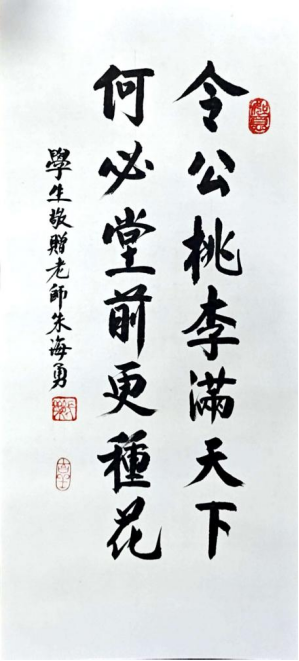 令公桃李滿天下
何必堂前更種花
學生敬贈老師朱海勇